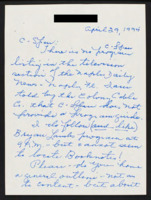 April 29, 1994
C-Span
There is no program
listing in the television
section of the Naples Daily
News - Naples, Fl. I was
told by the Cable
Co. that C-Span does not
provide a program guide.
I do follow (and like)
Brian Lamb program at
8 P.M. - but cannot seem
to locate Booknotes!
Please - do you have
a general outline - not as
to content - but about